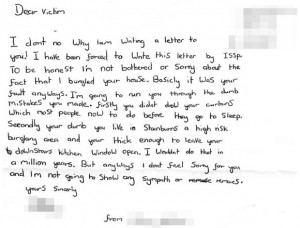 Dear Victim
I dont no Why Iam Writing a letter to
you! I have been forced to Write this letter by ISSP.
To be honest I'm not bothered or Sorry about the
fact that I burgled your house. Basicly it was your
fault anyways. I'm going to run you through the dumb
mistakes you made. firstly you didnt draw your curtains
Which most people now to do before they go to Sleep.
Secondly your dumb you live in Stainburn a high risk
burglary area and your thick enough to leave your
downstairs kitchen Window open. I wouldnt do that in
a million years. But anyways I dont feel Sorry for you
and Im not going to show any Sympath or remores.
yours Sincerly
from